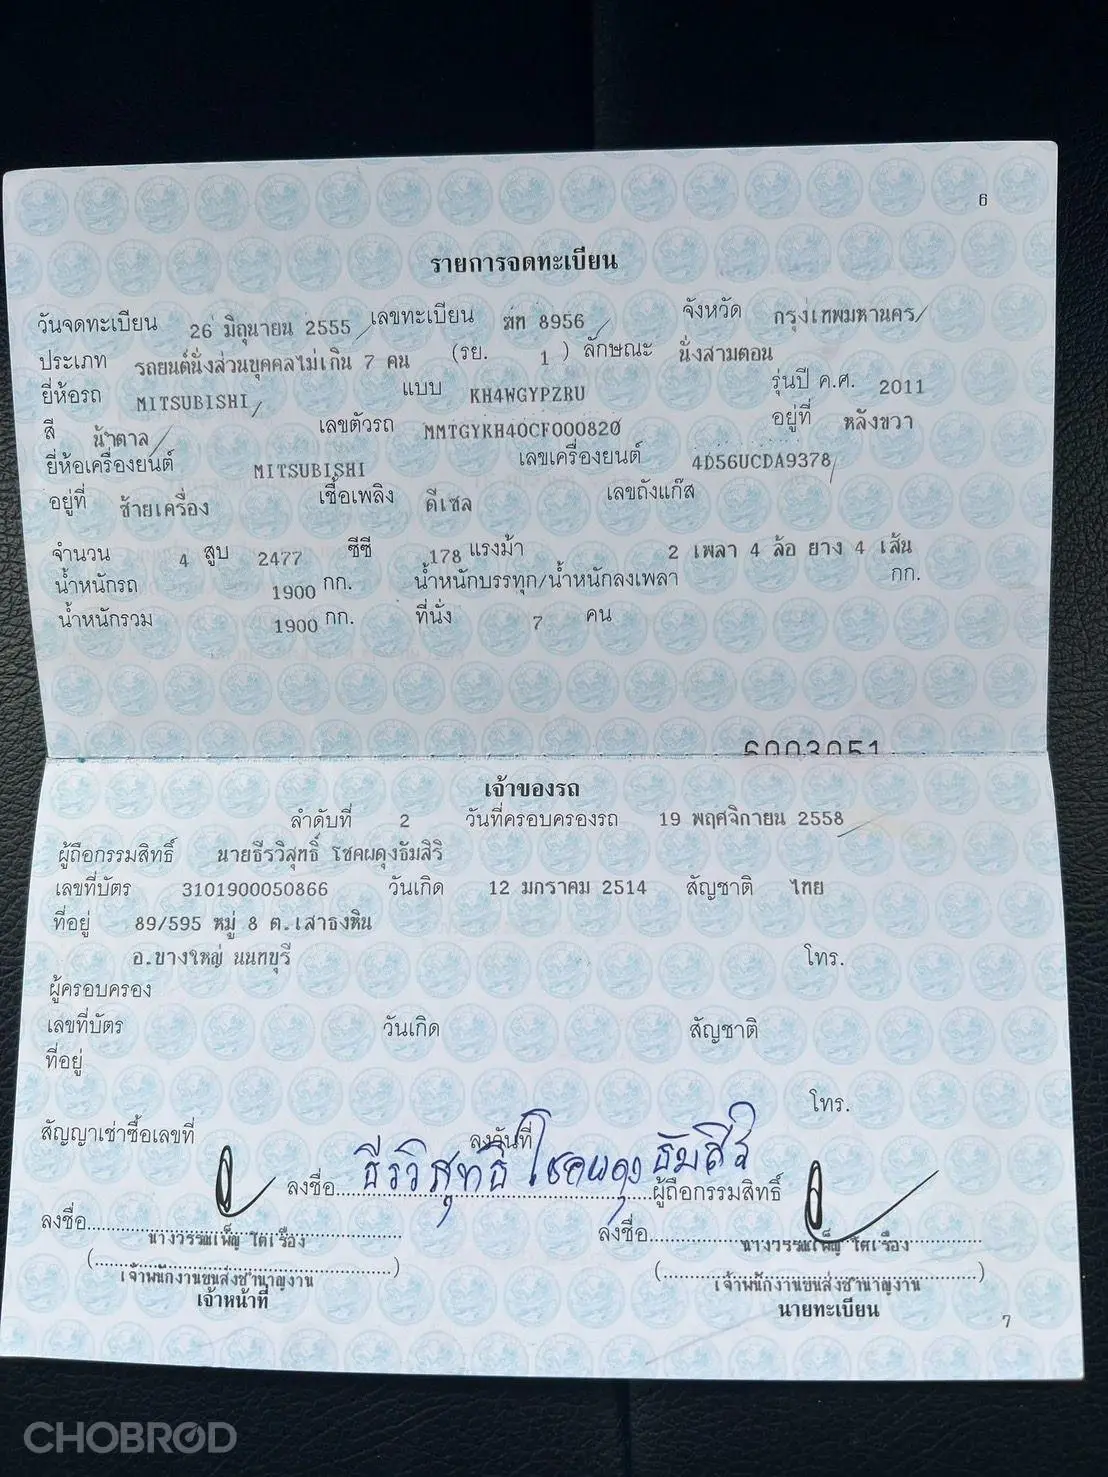 6
รายการจดทะเบียน
วันจดทะเบียน 26 มิถุนายน 2555 เลขทะเบียน ฆท 8956 จังหวัด กรุงเทพมหานคร
ประเภท รถยนต์นั่งส่วนบุคคลไม่เกิน 7 คน (รย. 1 ) ลักษณะ นั่งสามตอน
ยี่ห้อรถ MITSUBISHI แบบ KH4WGYPZRU รุ่นปี ค.ศ. 2011
สี น้ำตาล เลขตัวรถ MMTGYKH40CF000820 อยู่ที่ หลังขวา
ยี่ห้อเครื่องยนต์ MITSUBISHI เลขเครื่องยนต์ 4D56UCDA9378
อยู่ที่ ซ้ายเครื่อง เชื้อเพลิง ดีเซล เลขถังแก๊ส
จำนวน 4 สูบ 2477 ซีซี 178 แรงม้า 2 เพลา 4 ล้อ ยาง 4 เส้น
น้ำหนักรถ 1900 กก. น้ำหนักบรรทุก/น้ำหนักลงเพลา กก.
น้ำหนักรวม 1900 กก. ที่นั่ง 7 คน
6003051
เจ้าของรถ
ลำดับที่ 2 วันที่ครอบครองรถ 19 พฤศจิกายน 2558
ผู้ถือกรรมสิทธิ์ นายธีรวิสุทธิ์ โชคผดุงธัมสิริ
เลขที่บัตร 3101900050866 วันเกิด 12 มกราคม 2514 สัญชาติ ไทย
ที่อยู่ 89/595 หมู่ 8 ต.เสาธงหิน
อ.บางใหญ่ นนทบุรี โทร.
ผู้ครอบครอง
เลขที่บัตร วันเกิด สัญชาติ
ที่อยู่
โทร.
สัญญาเช่าซื้อเลขที่ ลงวันที่
ลงชื่อ ธีรวิสุทธิ์ โชคผดุงธัมสิริ ผู้ถือกรรมสิทธิ์
ลงชื่อ ลงชื่อ
นางวรรณเพ็ญ โตเรือง นางวรรณเพ็ญ โตเรือง
( ) ( )
เจ้าพนักงานขนส่งชำนาญงาน เจ้าพนักงานขนส่งชำนาญงาน
เจ้าหน้าที่ นายทะเบียน
7
CHOBROD